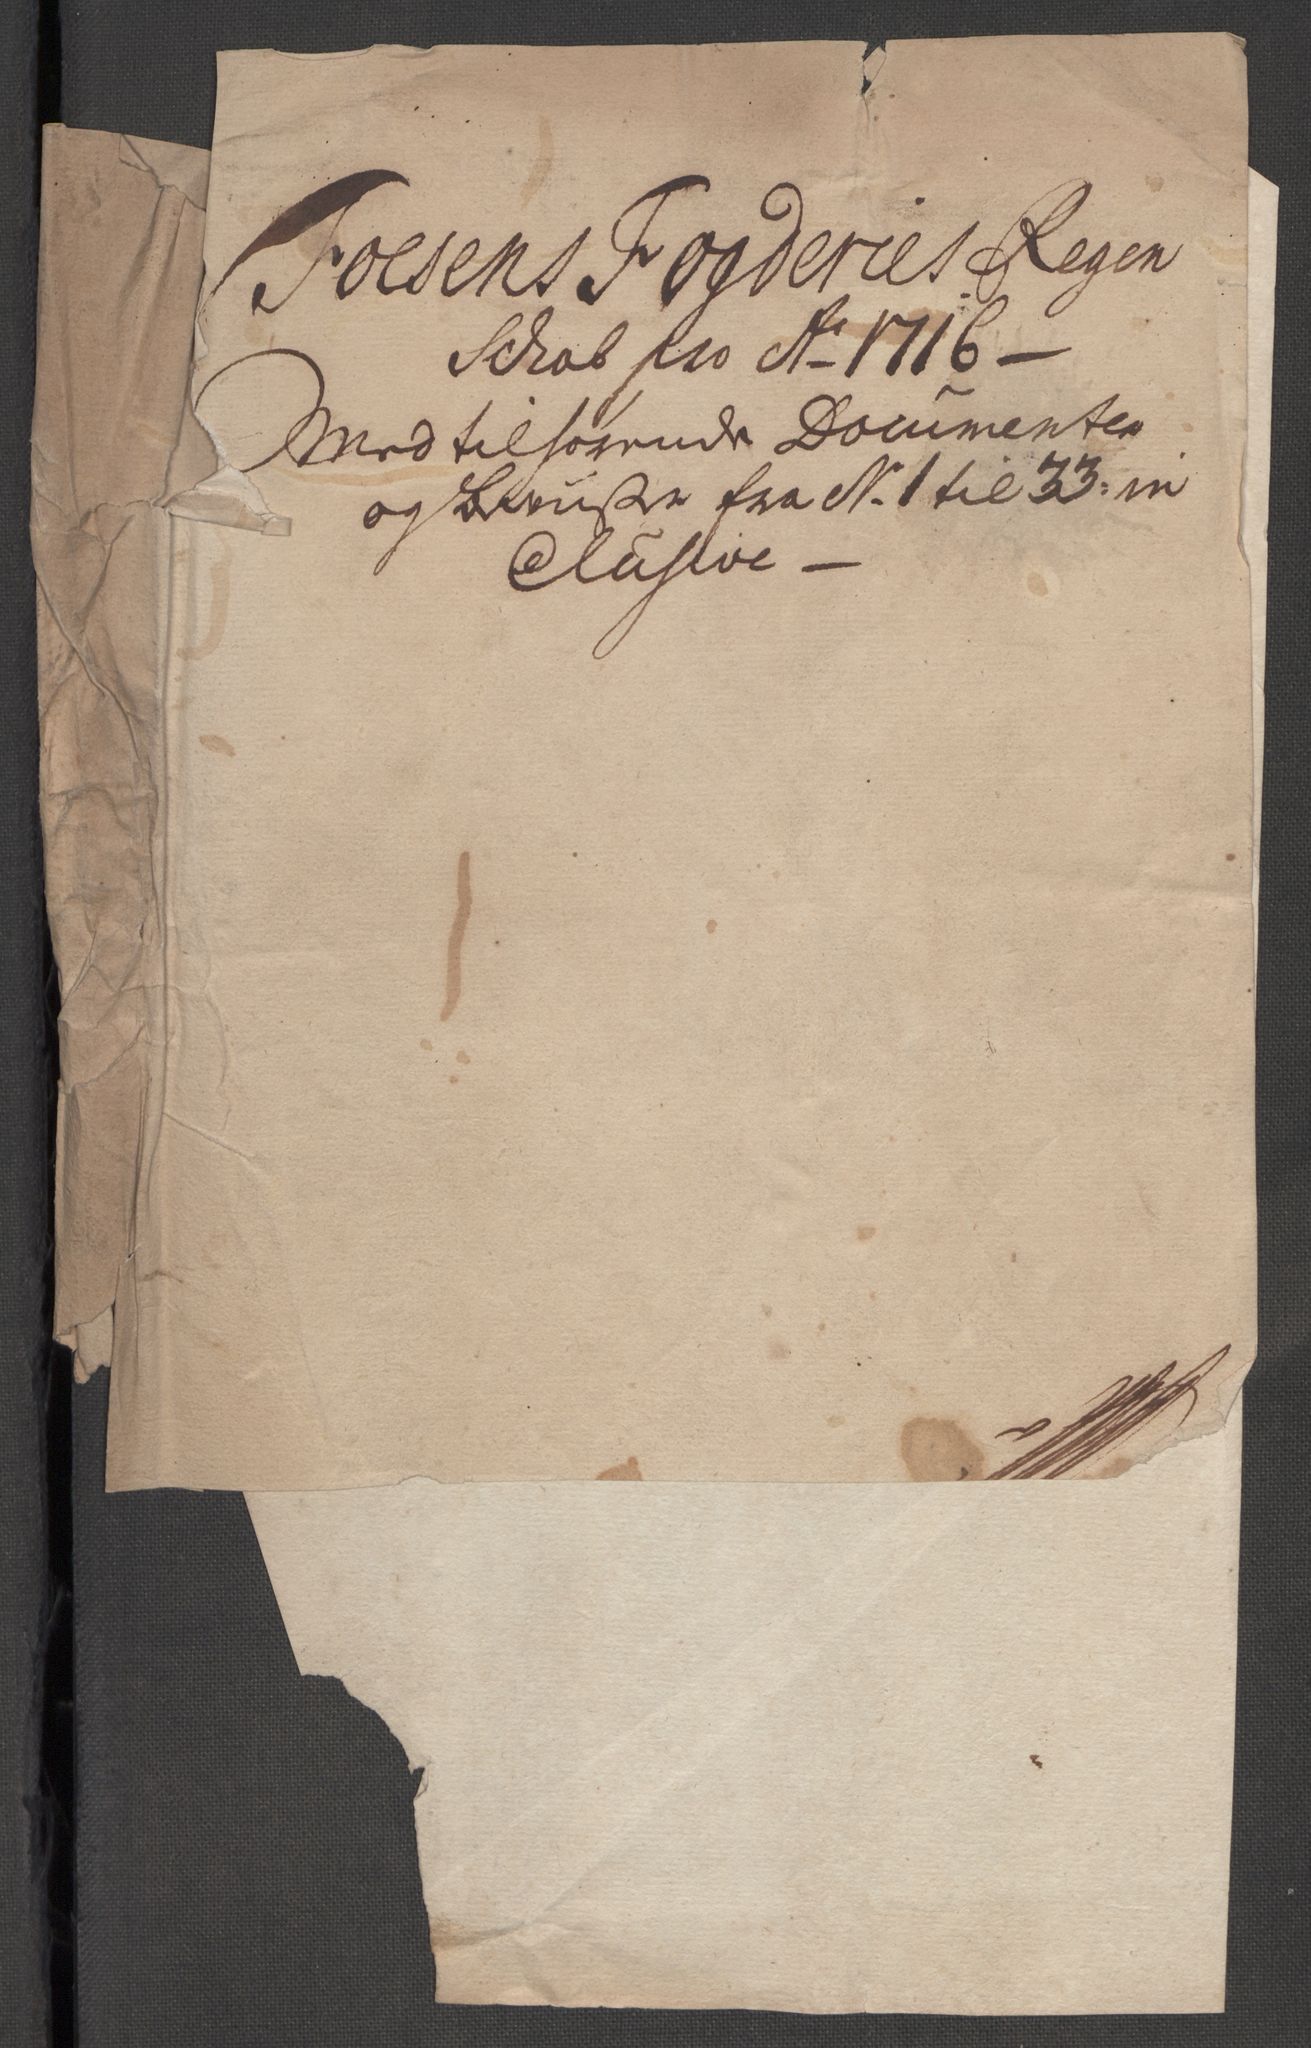 Foesens Fogderies Regen
Schab pro Ao 1716 —
Med tilhørende Documenter
og Beviißer fra No 1 til 33: in
Clusive —